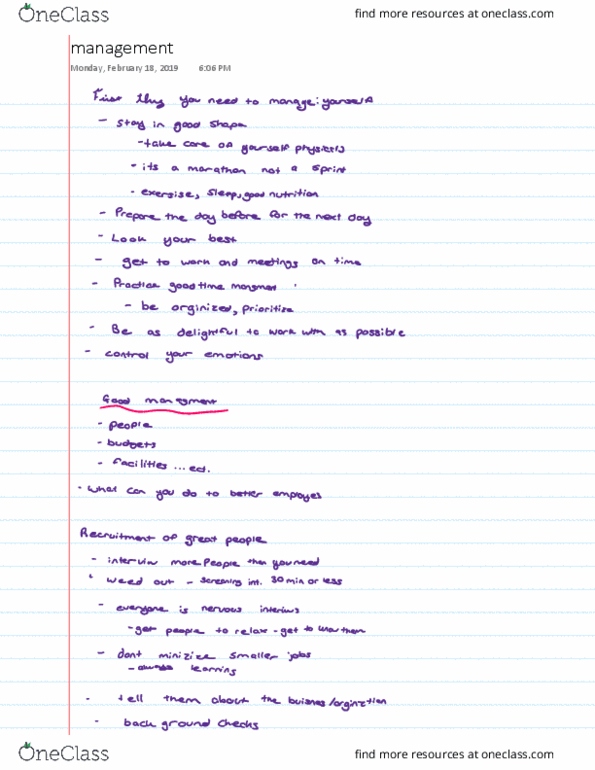 OneClass
find more resources at oneclass.com
management
Monday, February 18, 2019 6:06 PM
First thing you need to manage: yourself
- stay in good shape
- take care of yourself physically
- its a marathon not a sprint
- exercise, sleep, good nutrition
- Prepare the day before for the next day
- Look your best
- get to work and meetings on time
- Practice good time
- be orginized, prioritize
- Be as delightful to work with as possible
- control your emotions
Good managment
- people
- budgets
- facilities ... ect.
- what can you do to better employes
Recruitment of great people
- interviw more People then you need
- weed out - screening int. 30 min or less
- everyone is nervous
- get people to relax - get to know them
- dont minizize smaller jobs
- learning
- tell them about the
- back ground checks
OneClass
find more resources at oneclass.com